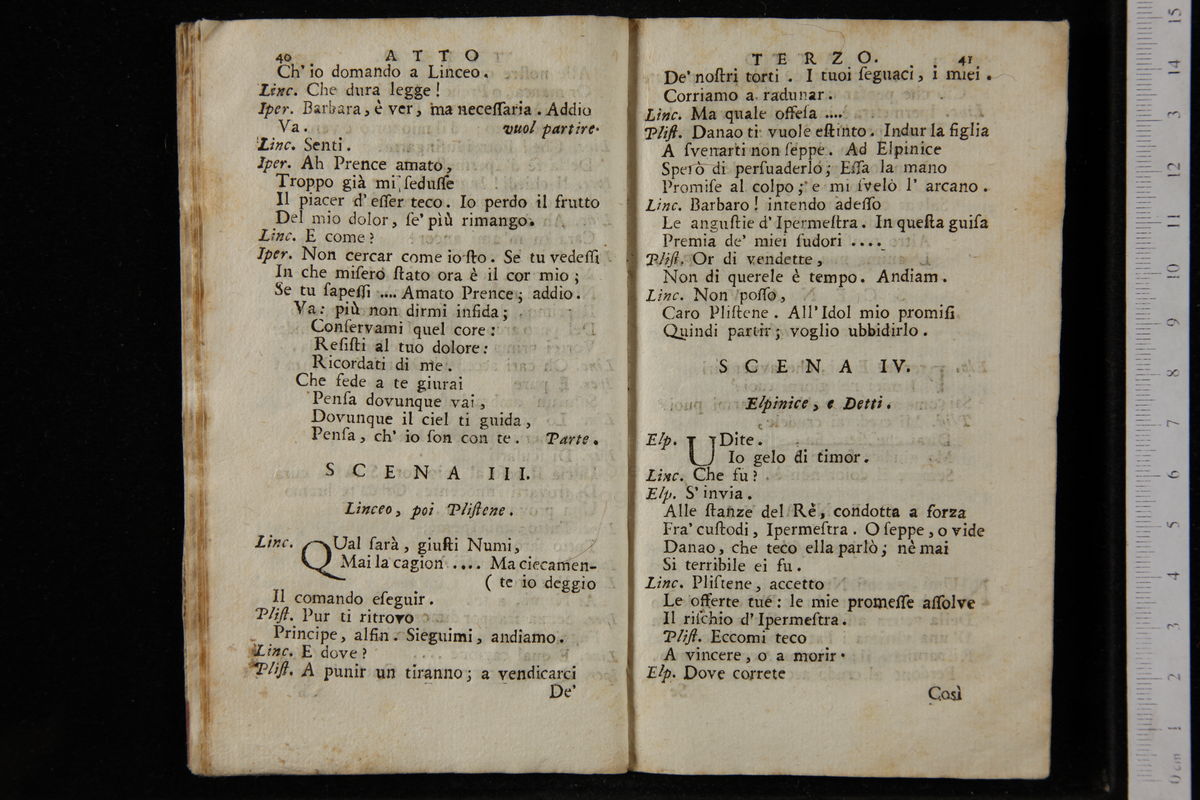 40 ATTO
Ch' io domando a Linceo.
Linc. Che dura legge!
Iper. Barbara, è ver, ma neceſſaria. Addio
Va. vuol partire.
Linc. Senti.
Iper. Ah Prence amato,
Troppo già mi ſeduſſe
Il piacer d' eſſer teco. Io perdo il frutto
Del mio dolor, ſe' più rimango.
Linc. E come?
Iper. Non cercar come io ſto. Se tu vedeſſi
In che miſero ſtato ora è il cor mio;
Se tu ſapeſſi .... Amato Prence; addio.
Va: più non dirmi infida;
Conſervami quel core:
Reſiſti al tuo dolore:
Ricordati di me.
Che fede a te giurai
Penſa dovunque vai,
Dovunque il ciel ti guida,
Penſa, ch' io ſon con te. Parte.
SCENA III.
Linceo, poi Pliſtene.
Linc. QUal ſarà, giuſti Numi,
Mai la cagion .... Ma ciecamen-
( te io deggio
Il comando eſeguir.
Pliſt. Pur ti ritrovo
Principe, alfin. Sieguimi, andiamo.
Linc. E dove?
Pliſt. A punir un tiranno; a vendicarci
De'
TERZO. 41
De' noſtri torti. I tuoi ſeguaci, i miei.
Corriamo a radunar.
Linc. Ma quale offeſa ....
Pliſt. Danao ti vuole eſtinto. Indur la figlia
A ſvenarti non ſeppe. Ad Elpinice
Sperò di perſuaderlo; Eſſa la mano
Promiſe al colpo; e mi ſvelò l' arcano.
Linc. Barbaro! intendo adeſſo
Le anguſtie d' Ipermeſtra. In queſta guiſa
Premia de' miei ſudori ....
Pliſt. Or di vendette,
Non di querele è tempo. Andiam.
Linc. Non poſſo,
Caro Pliſtene. All' Idol mio promiſi
Quindi partir; voglio ubbidirlo.
SCENA IV.
Elpinice, e Detti.
Elp. UDite.
Io gelo di timor.
Linc. Che fu?
Elp. S' invia.
Alle ſtanze del Rè, condotta a forza
Fra' cuſtodi, Ipermeſtra. O ſeppe, o vide
Danao, che teco ella parlò; nè mai
Si terribile ei fu.
Linc. Pliſtene, accetto
Le offerte tue: le mie promeſſe aſſolve
Il riſchio d' Ipermeſtra.
Pliſt. Eccomi teco
A vincere, o a morir.
Elp. Dove correte
Così
0 cm 1 2 3 4 5 6 7 8 9 10 11 12 13 14 15